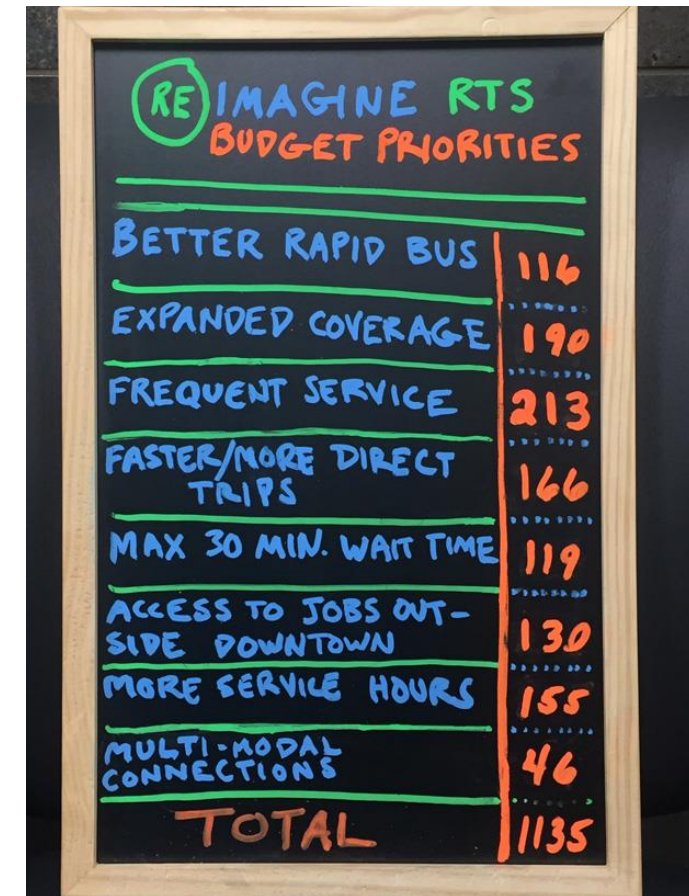 REIMAGINE RTS
BUDGET PRIORITIES
BETTER RAPID BUS 116
EXPANDED COVERAGE 190
FREQUENT SERVICE 213
FASTER/MORE DIRECT
TRIPS 166
MAX 30 MIN. WAIT TIME 119
ACCESS TO JOBS OUT-
SIDE DOWNTOWN 130
MORE SERVICE HOURS 155
MULTI-MODAL
CONNECTIONS 46
TOTAL 1135